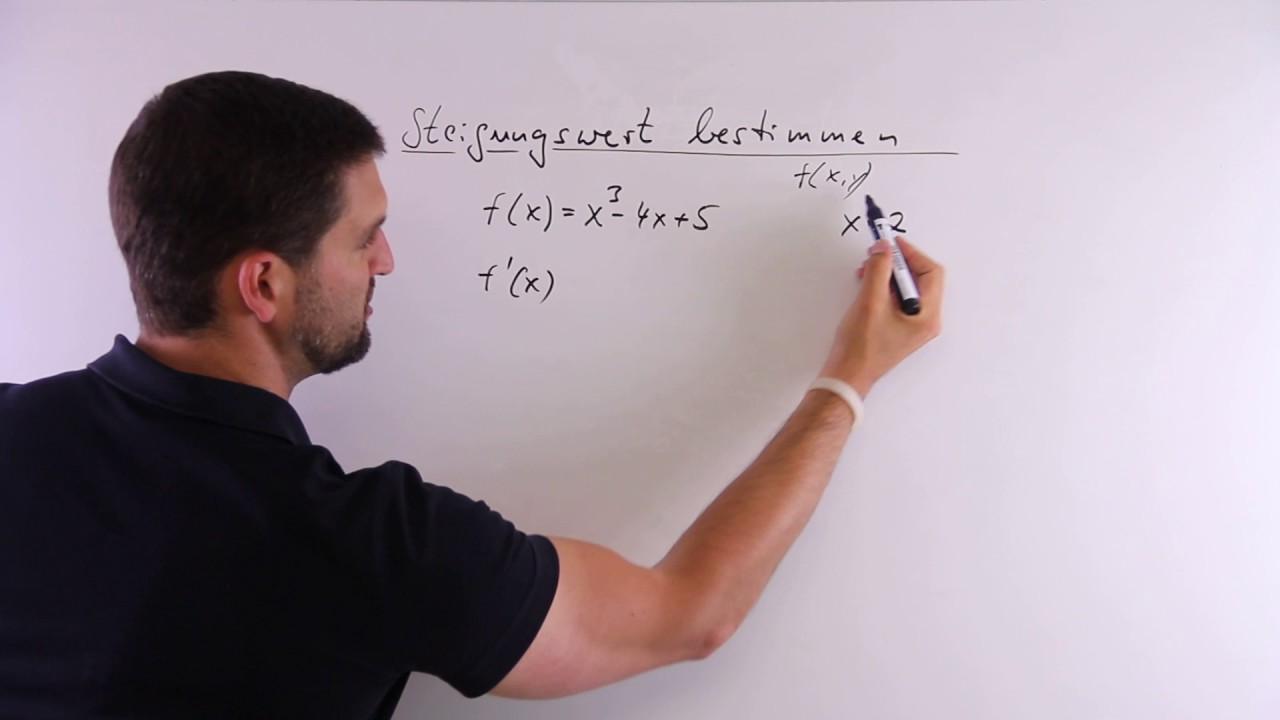 Steigungswert bestimmen
f(x,y)
f(x) = x³ - 4x + 5
x 2
f'(x)